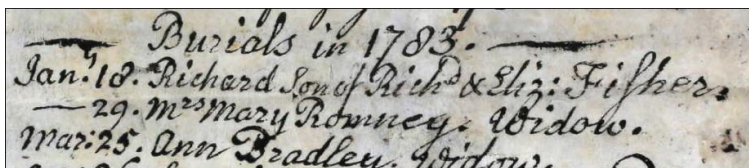 Burials in 1783.
Jan.y 18. Richard Son of Rich.d & Eliz: Fisher.
— 29. Mrs Mary Romney. Widow.
Mar: 25. Ann Bradley. Widow.